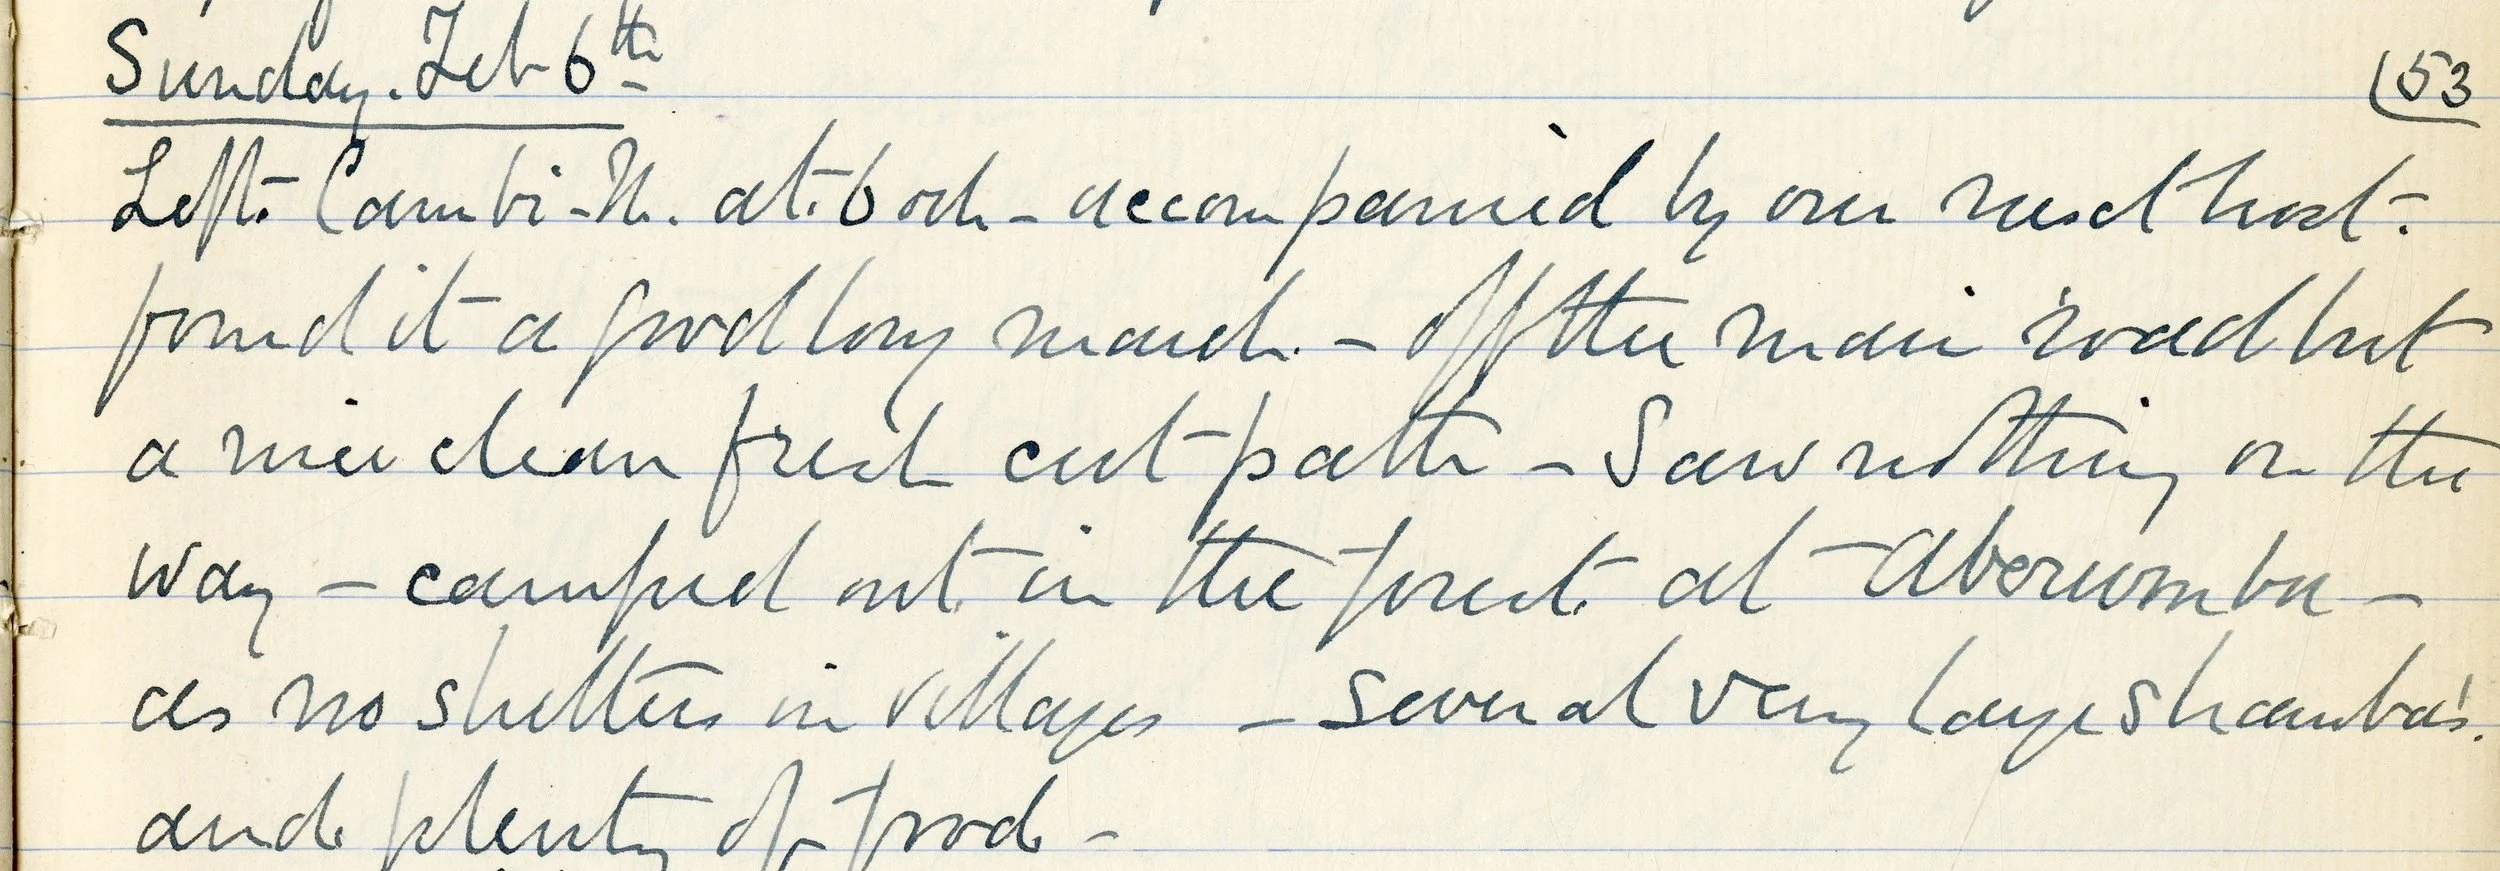 Sunday. Feb 6th
(53
Left Cambi-N. at 6 och - accompanied by our next host.
found it a good long march. - off the main road but
a nice clean fresh cut path - Saw nothing on the
way - camped out in the forest at
as no shelters in villages - several very large shamba's.
and plenty of food -